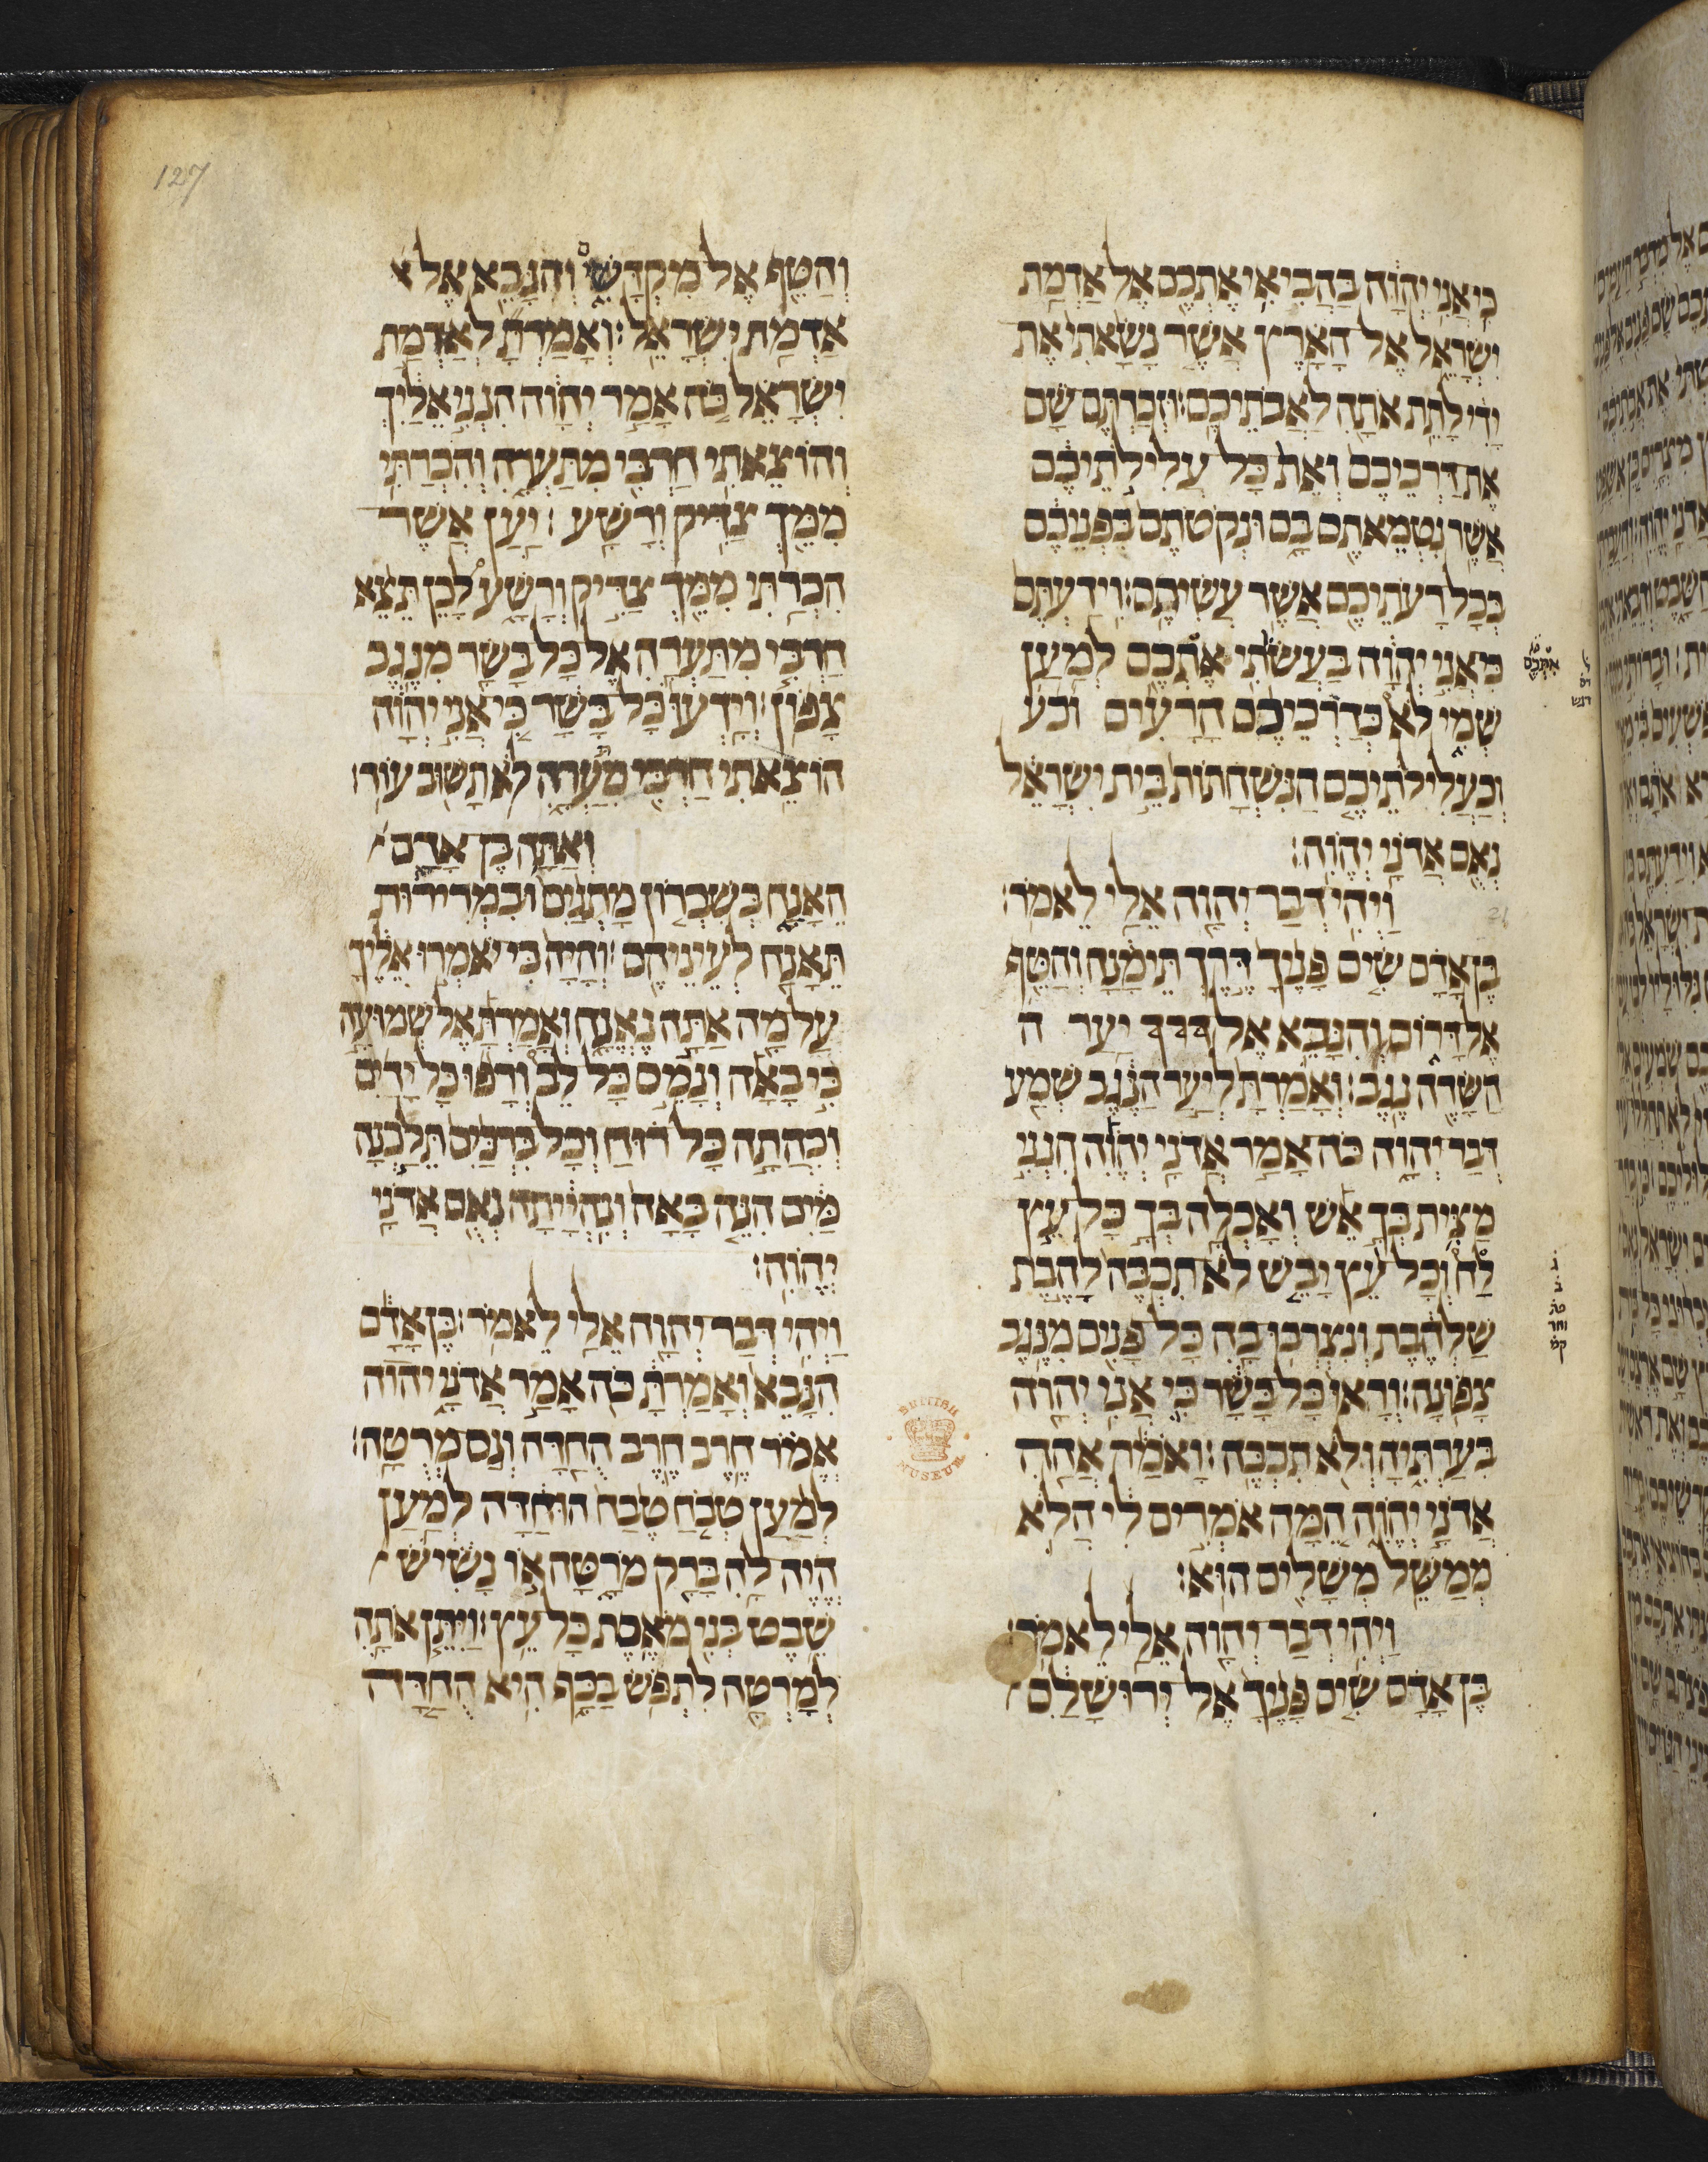 כי אני יהוה בהביאי אתכם אל אדמת
ישראל אל הארץ אשר נשאתי את
ידי לתת אתה לאבתיכם: וזכרתם שם
את דרכיכם ואת כל עלילתיכם
אשר נטמאתם בם ונקטתם בפניכם
בכל רעתיכם אשר עשיתם: וידעתם
כי אני יהוה בעשתי אתכם למען
שמי לא כדרכיכם הרעים וכע
וכעלילתיכם הנשחתות בית ישראל
נאם אדני יהוה:
ויהי דבר יהוה אלי לאמר:
בן אדם שים פניך דרך תימנה והטף
אל דרום והנבא אל יער ה
השדה נגב: ואמרת ליער הנגב שמע
דבר יהוה כה אמר אדני יהוה הנני
מצית בך אש ואכלה בך כל עץ
לח וכל עץ יבש לא תכבה להבת
שלהבת ונצרבו בה כל פנים מנגב
צפונה: וראו כל בשר כי אני יהוה
בערתיה ולא תכבה: ואמר אהה
אדני יהוה המה אמרים לי הלא
ממשל משלים הוא:
ויהי דבר יהוה אלי לאמר:
בן אדם שים פניך אל ירושלם
127
והטף אל מקדשים והנבא אל
אדמת ישראל: ואמרת לאדמת
ישראל כה אמר יהוה הנני אליך
והוצאתי חרבי מתערה והכרתי
ממך צדיק ורשע: יען אשר
הכרתי ממך צדיק ורשע לכן תצא
חרבי מתערה אל כל בשר מנגב
צפון: וידעו כל בשר כי אני יהוה
הוצאתי חרבי מתערה לא תשוב עוד:
ואתה בן אדם
האנח בשברון מתנים ובמרירות
תאנח לעיניהם: והיה כי יאמרו אליך
על מה אתה נאנח ואמרת אל שמועה
כי באה ונמס כל לב ורפו כל ידים
וכהתה כל רוח וכל ברכים תלכנה
מים הנה באה ונהייתה נאם אדני
יהוה:
ויהי דבר יהוה אלי לאמר: בן אדם
הנבא ואמרת כה אמר אדני יהוה
אמר חרב חרב החדה וגם מרטה:
למען טבח טבח הוחדה למען
היה לה ברק מרטה או נשיש
שבט בני מאסת כל עץ: ויתן אתה
למרטה לתפש בכף היא החדה
BRITISH MUSEUM
21
אתכם